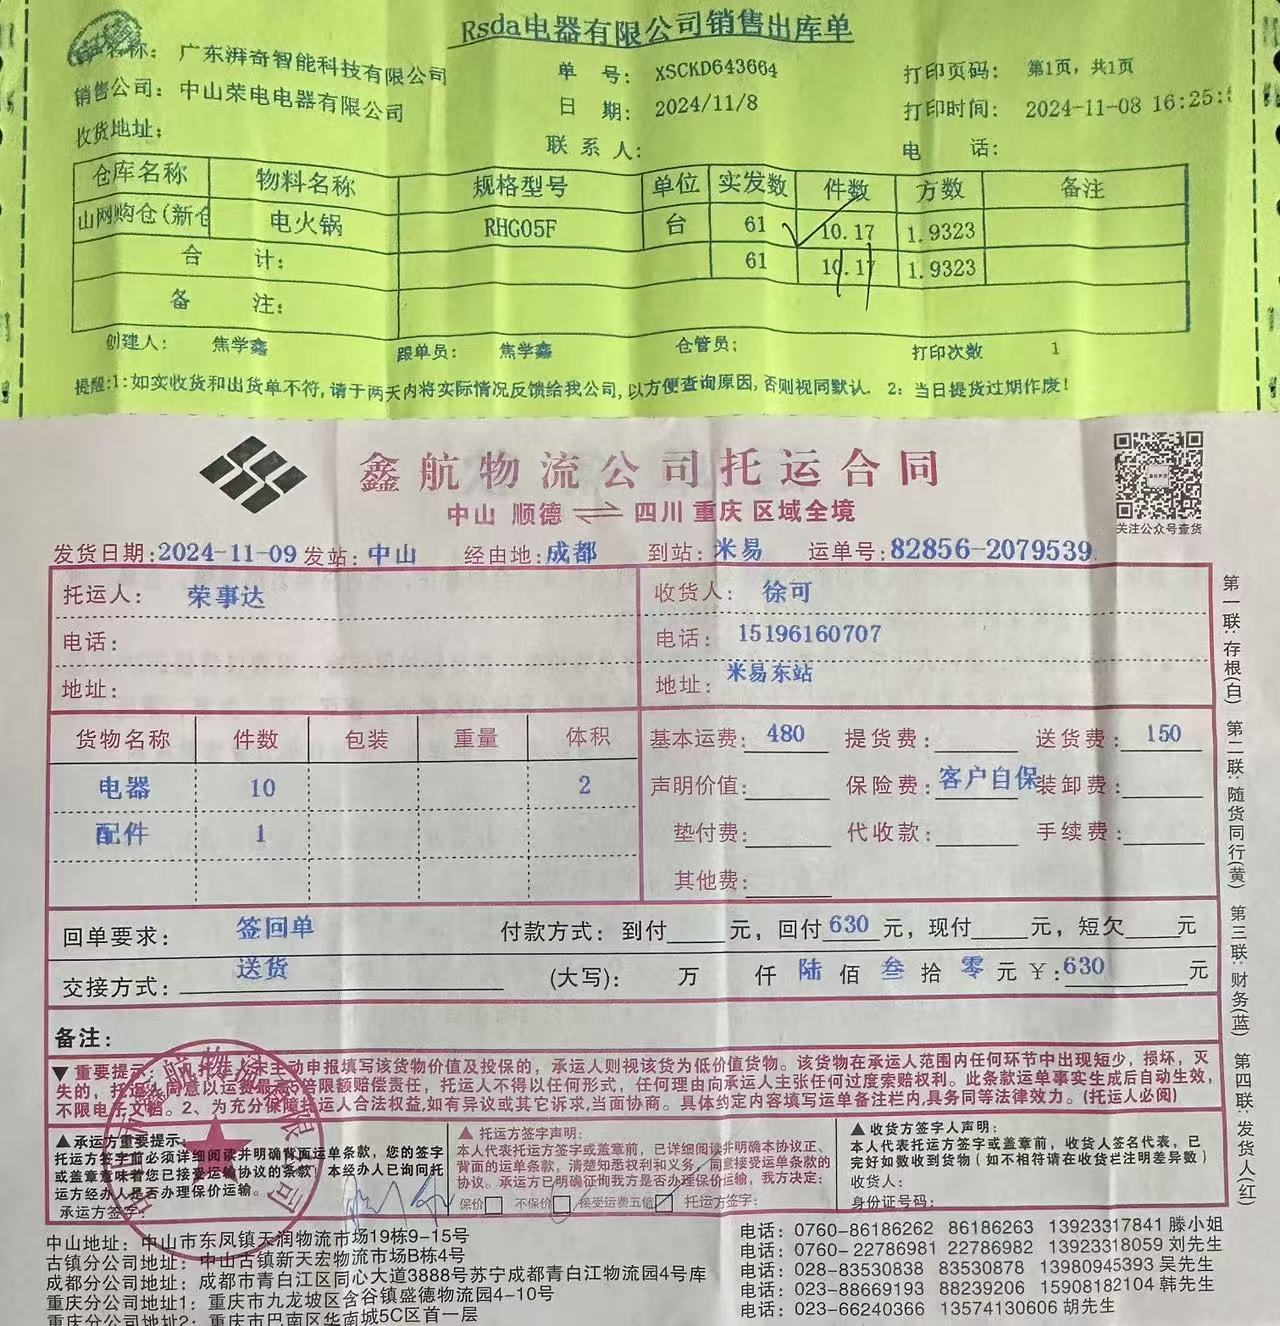 Rsda电器有限公司销售出库单
名称： 广东湃奇智能科技有限公司 单 号： XSCKD643664 打印页码： 第1页，共1页
销售公司： 中山荣电电器有限公司 日 期： 2024/11/8 打印时间： 2024-11-08 16:25:
收货地址： 联 系 人： 电 话：
仓库名称 物料名称 规格型号 单位 实发数 件数 方数 备注
山网购仓(新仓 电火锅 RHG05F 台 61 10.17 1.9323
合 计： 61 10.17 1.9323
备 注：
创建人： 焦学鑫 跟单员： 焦学鑫 仓管员； 打印次数 1
提醒：1：如实收货和出货单不符，请于两天内将实际情况反馈给我公司，以方便查询原因，否则视同默认. 2：当日提货过期作废！
鑫航物流公司托运合同
中山 顺德 ⇌ 四川 重庆 区域全境
关注公众号查货
发货日期：2024-11-09 发站：中山 经由地：成都 到站：米易 运单号：82856-2079539
托运人： 荣事达 收货人： 徐可
电话： 电话： 15196160707
地址： 地址： 米易东站
货物名称 件数 包装 重量 体积 基本运费： 480 提货费： 送货费： 150
电器 10 2 声明价值： 保险费： 客户自保 装卸费：
配件 1 垫付费： 代收款： 手续费：
其他费：
回单要求： 签回单 付款方式：到付 元，回付 630 元，现付 元，短欠 元
交接方式： 送货 (大写)： 万 仟 陆 佰 叁 拾 零 元 ￥：630 元
备注：
▼ 重要提示： 未主动申报填写该货物价值及投保的，承运人则视该货为低价值货物。该货物在承运人范围内任何环节中出现短少，损坏，灭
失的，托运人同意以运费最高5倍限额赔偿责任，托运人不得以任何形式，任何理由向承运人主张任何过度索赔权利。此条款运单事实生成后自动生效，
不限电子文档。2、为充分保障托运人合法权益，如有异议或其它诉求，当面协商。具体约定内容填写运单备注栏内，具务同等法律效力。(托运人必阅)
▲承运方重要提示：
托运方签字前必须详细阅读并明确背面运单条款，您的签字
或盖章意味着您已接受运输协议的条款 本经办人已询问托
运方经办人是否办理保价运输。
承运方签字：
▲ 托运方签字声明：
本人代表托运方签字或盖章前，已详细阅读并明确本协议正、
背面的运单条款，清楚知悉权利和义务，同意接受运单条款的
协议。承运方已明确征询我方是否办理保价运输，我方决定：
保价□ 不保价□ 接受运费五倍□ 托运方签字：
▲收货方签字人声明：
本人代表托运方签字或盖章前，收货人签名代表，已
完好如数收到货物（如不相符请在收货栏注明差异数）
收货人：
身份证号码：
第一联：存根(白)
第二联：随货同行(黄)
第三联：财务(蓝)
第四联：发货人(红)
中山地址：中山市东凤镇天润物流市场19栋9-15号 电话：0760-86186262 86186263 13923317841 滕小姐
古镇分公司地址：中山古镇新天宏物流市场B栋4号 电话：0760-22786981 22786982 13923318059 刘先生
成都分公司地址：成都市青白江区同心大道3888号苏宁成都青白江物流园4号库 电话：028-83530838 83530878 13980945393 吴先生
重庆分公司地址1：重庆市九龙坡区含谷镇盛德物流园4-10号 电话：023-88669193 88239206 15908182104 韩先生
重庆分公司地址2：重庆市巴南区华南城5C区首一层 电话：023-66240366 13574130606 胡先生